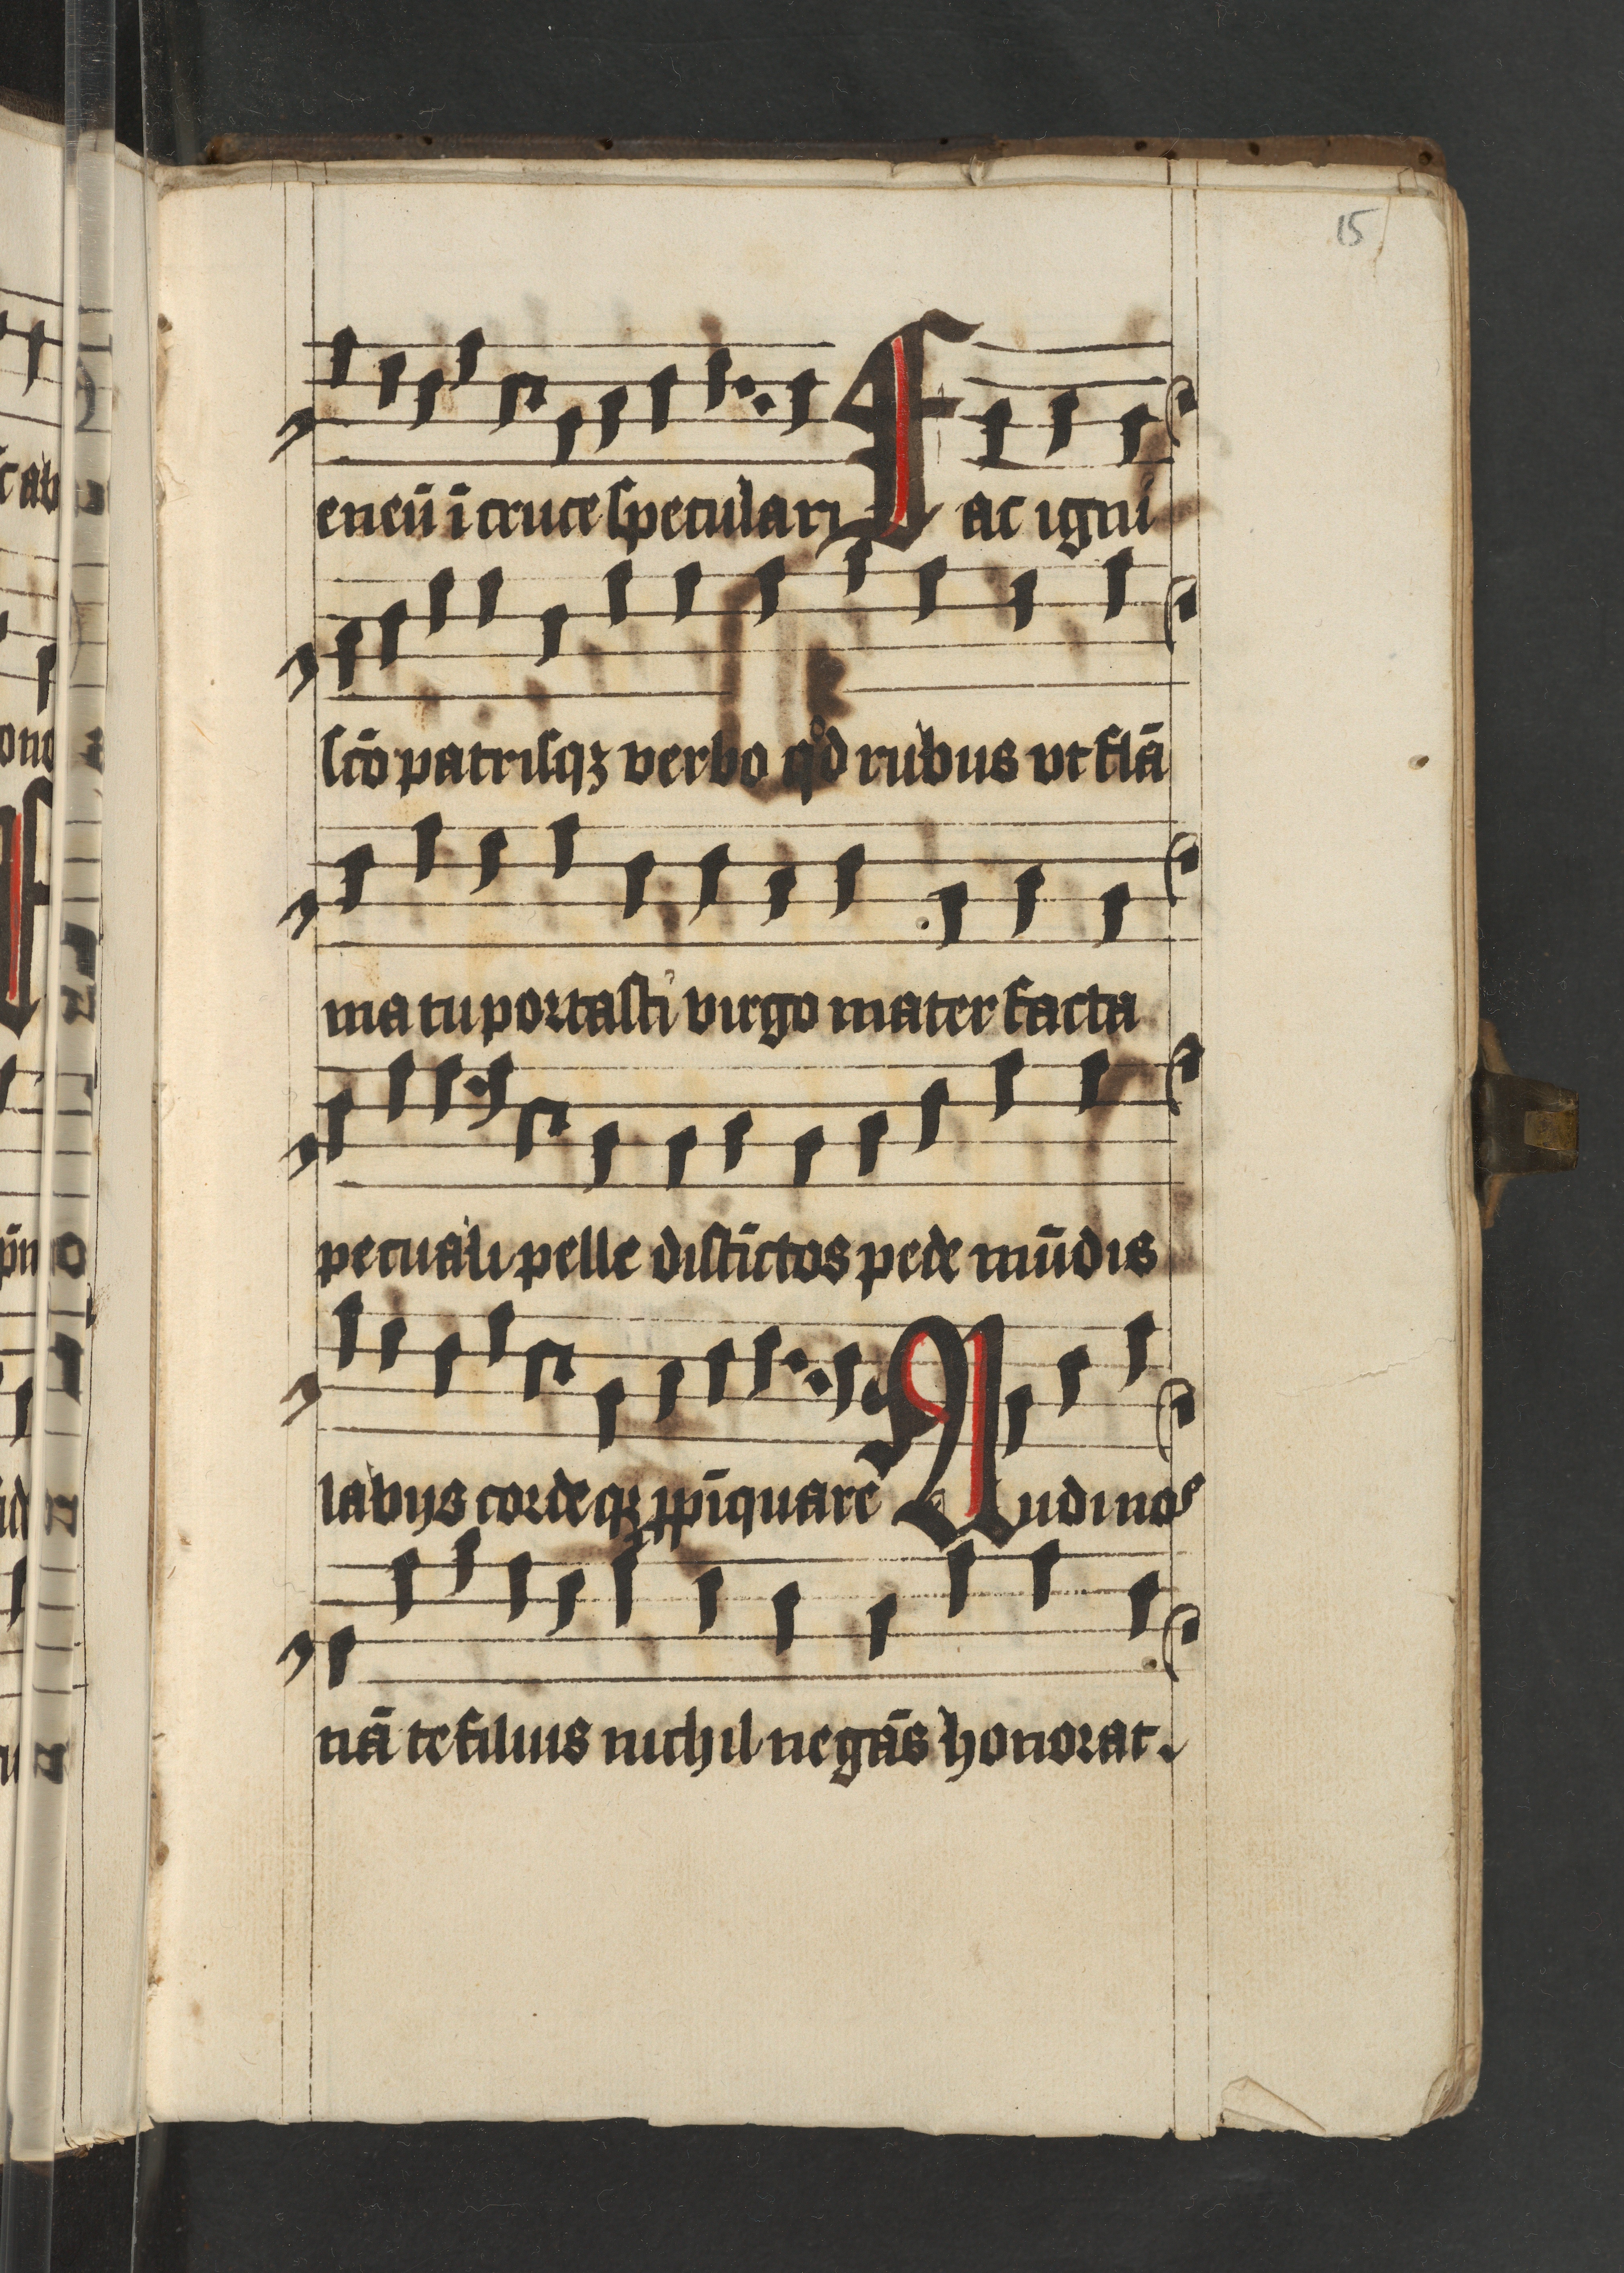 15
eneū ī cruce speculari Fac igni
scō patrisqꝫ verbo qͦd rubus vt flā
ma tu portasti virgo mater facta
pecuali pelle distīctos pede mūdis
labijs cordeqꝫ ꝓpīquare Audi nos
nā te filius nichil negās honorat.